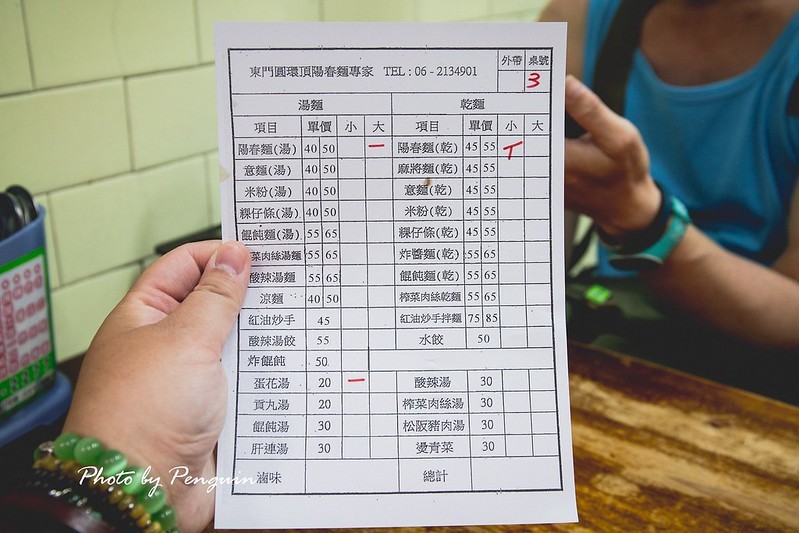 東門圓環頂陽春麵專家 TEL：06－2134901 外帶 桌號
3
湯麵 乾麵
項目 單價 小 大 項目 單價 小 大
陽春麵(湯) 40 50 一 陽春麵(乾) 45 55 丅
意麵(湯) 40 50 麻將麵(乾) 45 55
米粉(湯) 40 50 意麵(乾) 45 55
粿仔條(湯) 40 50 米粉(乾) 45 55
餛飩麵(湯) 55 65 粿仔條(乾) 45 55
菜肉絲湯麵 55 65 炸醬麵(乾) 55 65
酸辣湯麵 55 65 餛飩麵(乾) 55 65
涼麵 40 50 榨菜肉絲乾麵 55 65
紅油炒手 45 紅油炒手拌麵 75 85
酸辣湯餃 55 水餃 50
炸餛飩 50
蛋花湯 20 一 酸辣湯 30
貢丸湯 20 榨菜肉絲湯 30
餛飩湯 30 松阪豬肉湯 30
肝連湯 30 燙青菜 30
滷味 總計
Photo by Penguin